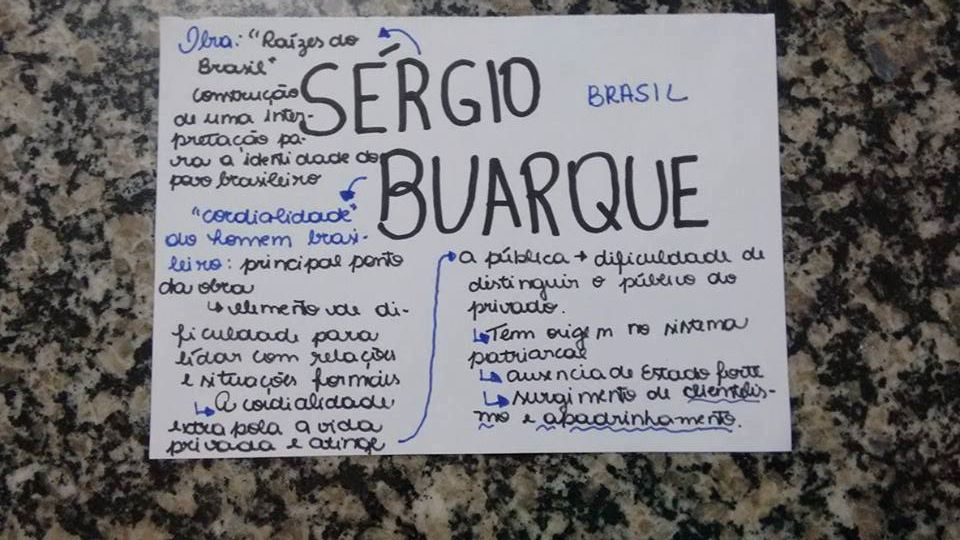 SÉRGIO
BUARQUE
BRASIL
Obra: "Raízes do
Brasil"
construção
de uma inter-
pretação pa-
ra a identidade do
povo brasileiro
"cordialidade"
do homem brasi-
leiro: principal ponto
da obra
↳ elemento de di-
ficuldade para
lidar com relações
e situações formais
↳ A cordialidade
extrapola a vida
privada e atinge
a pública → dificuldade de
distinguir o público do
privado.
↳ Tem origem no sistema
patriarcal
↳ ausencia de Estado forte
↳ surgimento de clientelis-
mo e apadrinhamento.